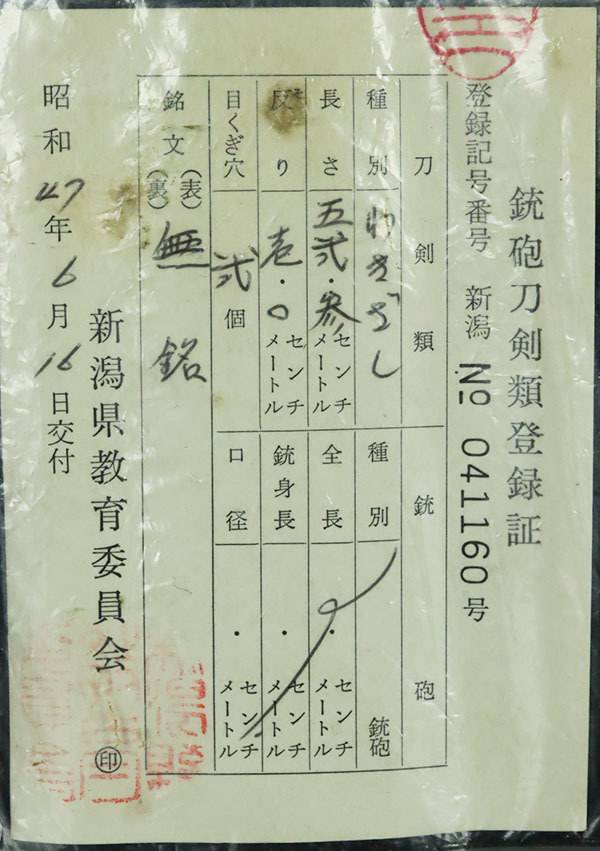 銃砲刀剣類登録証
登録記号番号 新潟 № 041160号
刀剣類
種別 わきざし
長さ 五弐・参 センチメートル
反り 壱・〇 センチメートル
目くぎ穴 弐 個
銃砲
種別 銃砲
全長 ・ センチメートル
銃身長 ・ センチメートル
口径 ・ センチメートル
銘文 (表) (裏) 無銘
新潟県教育委員会 ㊞
昭和47年6月16日交付